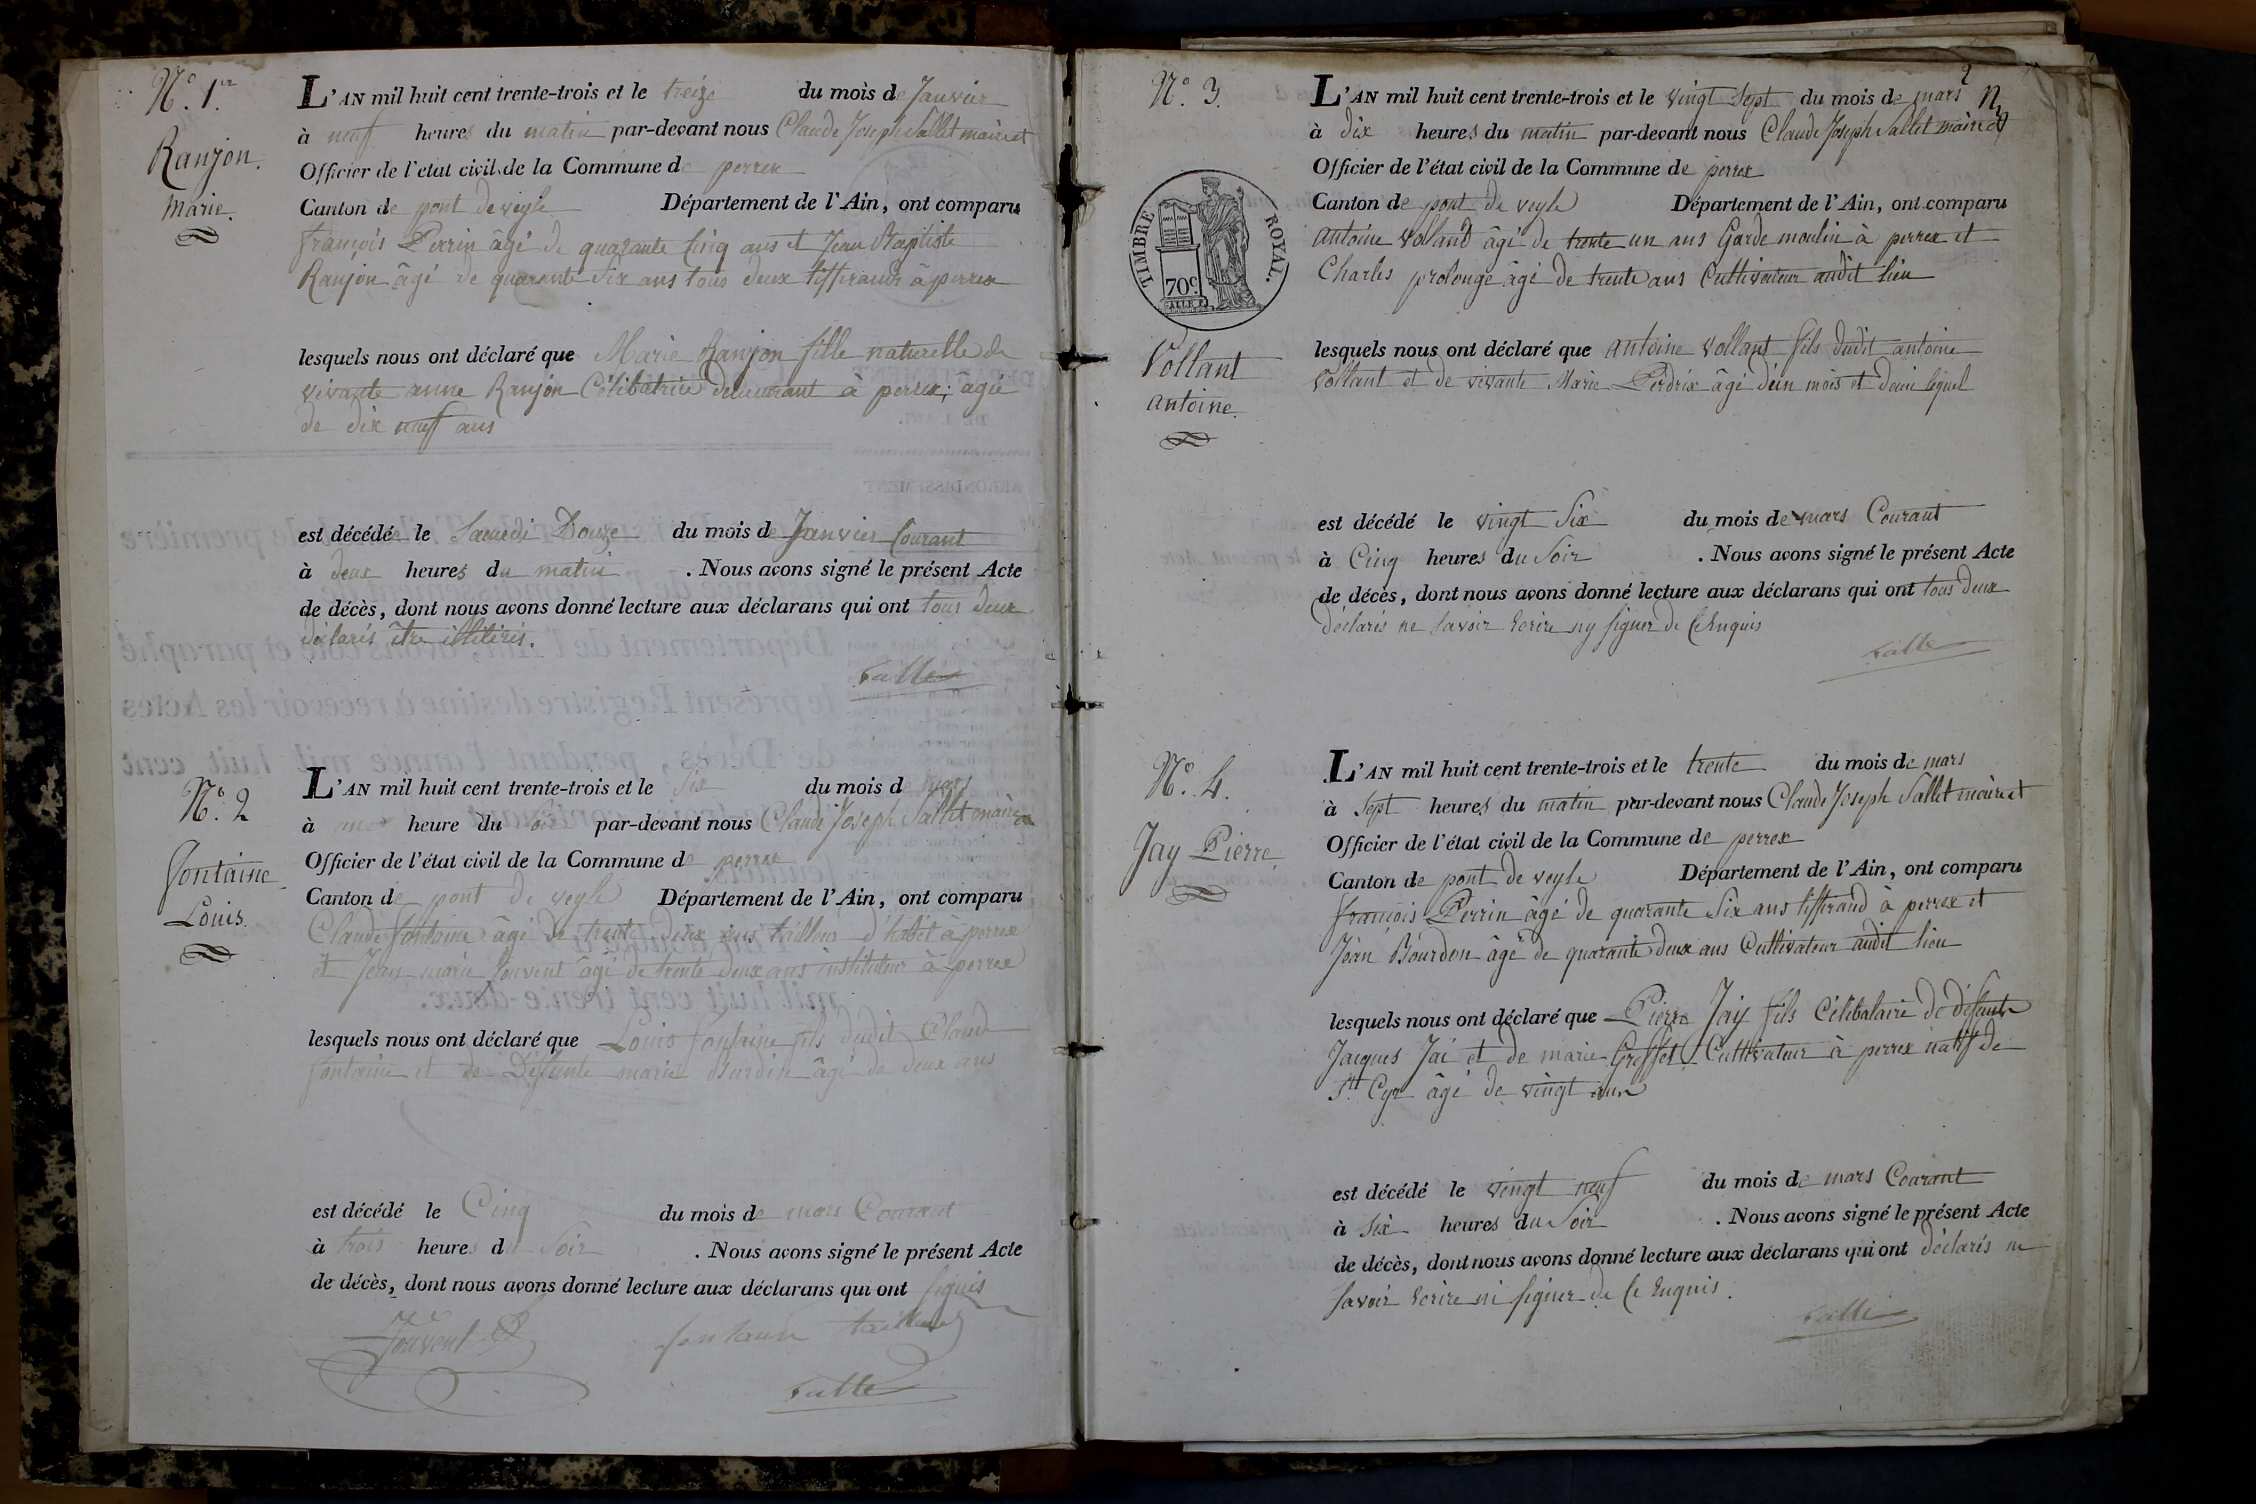 N.° 1.er
Ranjon.
Marie.
L'AN mil huit cent trente-trois et le treize du mois de Janvier
à neuf heures du matin par-devant nous Claude Joseph Sallet maire et
Officier de l'état civil de la Commune de perrex
Canton de pont de veyle Département de l'Ain, ont comparu
françois Perrin âgé de quarante Cinq ans et Jean Baptiste
Ranjon âgé de quarante Six ans tous deux tisserands à perrex
lesquels nous ont déclaré que Marie Ranjon fille naturelle de
vivante anne Ranjon Célibatrice demeurant à perrex, âgée
de dix neuf ans
est décédée le Samedi Douze du mois de Janvier Courant
à deux heures du matin . Nous avons signé le présent Acte
de décès, dont nous avons donné lecture aux déclarans qui ont tous deux
déclarés être illitirés.
Sallet
N.° 2
fontaine
Louis.
L'AN mil huit cent trente-trois et le Six du mois d mars
à heure du par-devant nous Claude Joseph Sallet maire et
Officier de l'état civil de la Commune de perrex
Canton de pont de veyle Département de l'Ain, ont comparu
Claude fontaine âgé de trente deux ans tailleur d'habit à perrex
et Jean marie Jouvent âgé de trente deux ans instituteur à perrex
lesquels nous ont déclaré que Louis fontaine fils dudit Claude
fontaine et de Défunte marie Burdin âgé de deux ans
est décédé le Cinq du mois de mars Courant
à trois heures du Soir . Nous avons signé le présent Acte
de décès, dont nous avons donné lecture aux déclarans qui ont signés
Jouvent fontaine tailleur
Sallet
2
N.° 3.
TIMBRE ROYAL.
70c
Vollant
antoine.
L'AN mil huit cent trente-trois et le vingt Sept du mois de mars
à dix heures du matin par-devant nous Claude Joseph Sallet maire et
Officier de l'état civil de la Commune de perrex
Canton de pont de veyle Département de l'Ain, ont comparu
antoine Volland âgé de trente un ans Garde moulin à perrex et
Charles prolonge âgé de trente ans Cultivateur audit lieu
lesquels nous ont déclaré que antoine Vollant fils dudit antoine
Vollant et de vivante Marie Perdrix âgé d'un mois et demi lequel
est décédé le vingt Six du mois de mars Courant
à Cinq heures du Soir . Nous avons signé le présent Acte
de décès, dont nous avons donné lecture aux déclarans qui ont tous deux
déclarés ne Savoir Ecrire ny signer de Ce Enquis
Sallet
N.° 4.
Jay Pierre
L'AN mil huit cent trente-trois et le trente du mois de mars
à Sept heures du matin par-devant nous Claude Joseph Sallet maire et
Officier de l'état civil de la Commune de perrex
Canton de pont de veyle Département de l'Ain, ont comparu
françois Perrin âgé de quarante Six ans tisserand à perrex et
Jean Bourdon âgé de quarante deux ans Cultivateur audit lieu
lesquels nous ont déclaré que Pierre Jay fils Célibataire de défunt
Jacques Jai et de marie Grosset Cultivateur à perrex natif de
St. Cyr âgé de vingt ans
est décédé le vingt neuf du mois de mars Courant
à Six heures du Soir . Nous avons signé le présent Acte
de décès, dont nous avons donné lecture aux déclarans qui ont déclarés ne
Savoir Ecrire ni signer de Ce Enquis.
Sallet